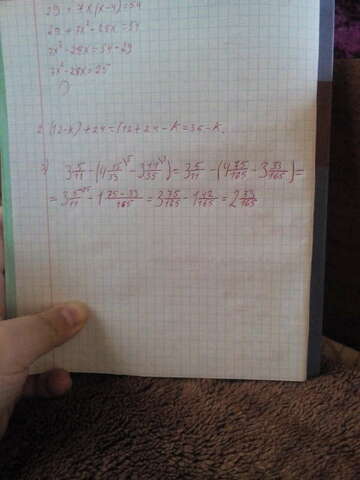 29 + 7x(x-4)=54
29 + 7x²-28x=54
7x²-28x=54-29
7x²-28x=25
2. (12-к)+24=(12+24-к=36-к.
3) 3 5/11 - (4 15/33 - 3 11/35) = 3 5/11 - (4 75/165 - 3 33/165) =
= 3 5/11 - 1 75-33/165 = 3 75/165 - 1 42/165 = 2 33/165